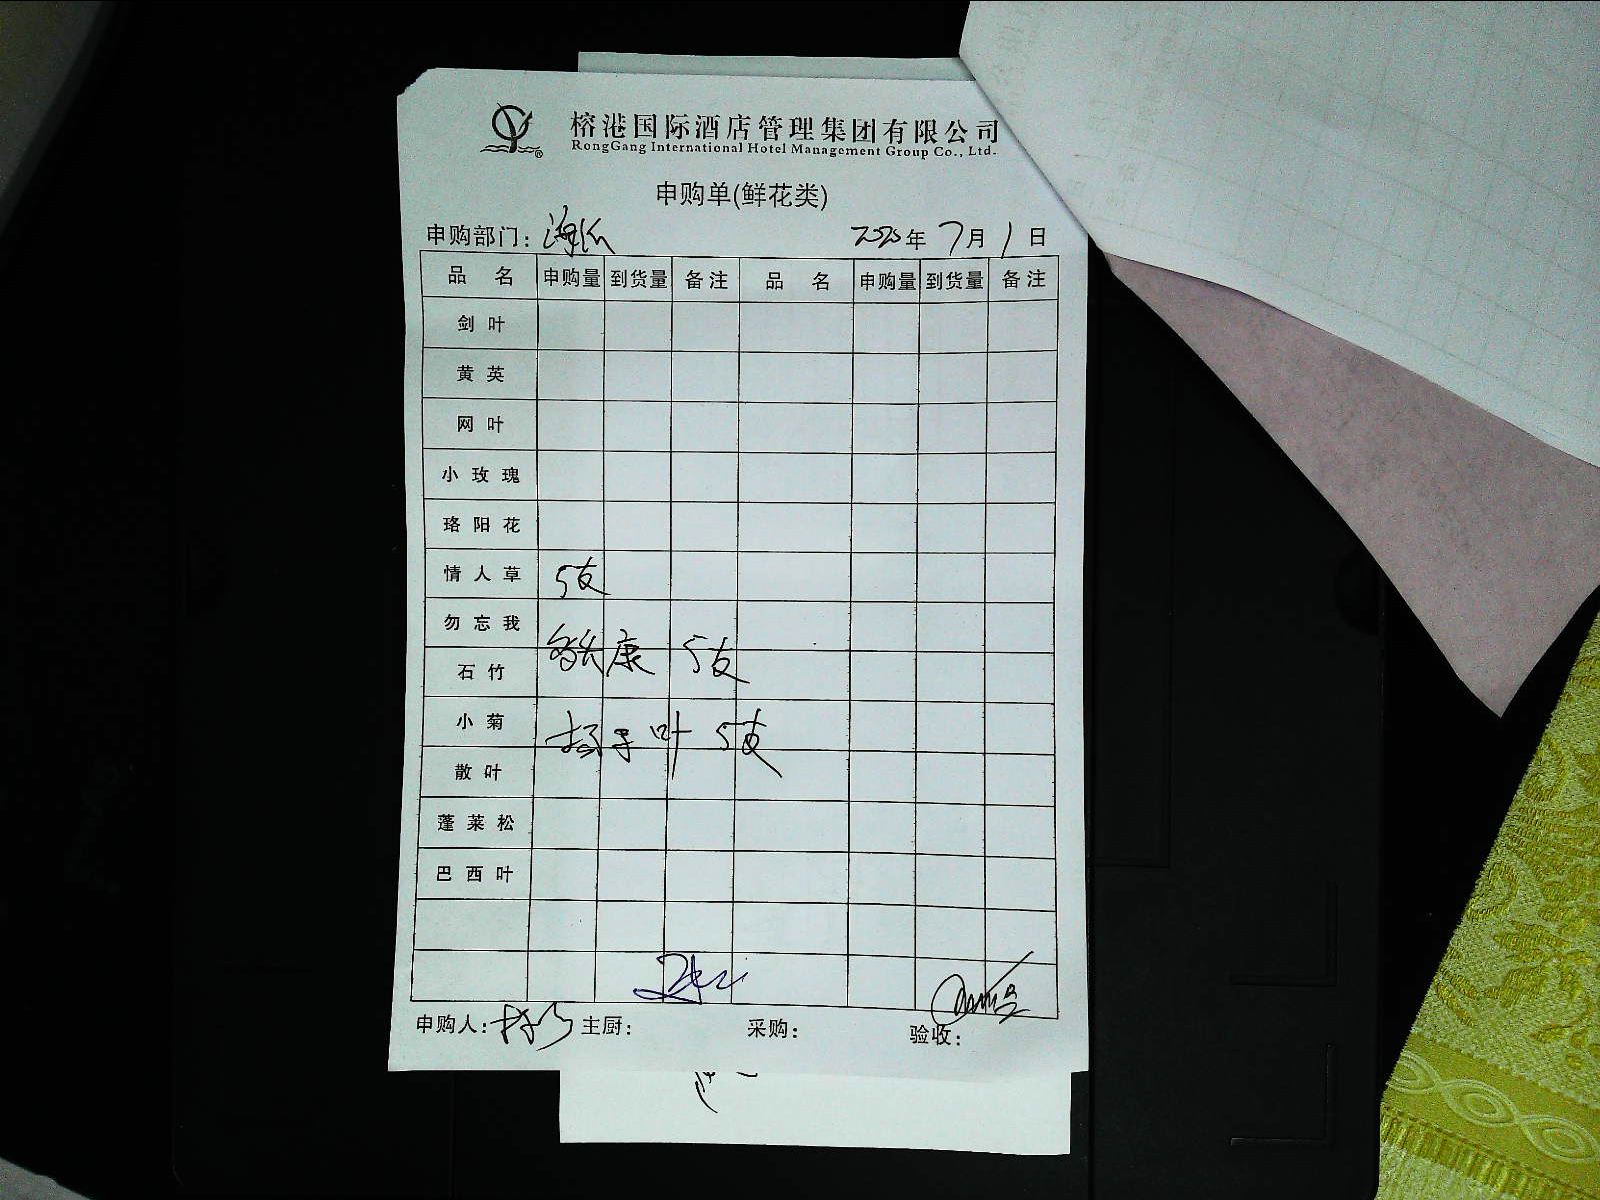 榕港国际酒店管理集团有限公司
RongGang International Hotel Management Group Co., Ltd.
申购单(鲜花类)
申购部门: 2020年 7月 1日
品 名 申购量 到货量 备注 品 名 申购量 到货量 备注
剑叶
黄英
网叶
小玫瑰
珞阳花
情人草 5支
勿忘我
康 5支
石竹
小菊
扬子叶 5支
散叶
蓬莱松
巴西叶
申购人: 主厨: 采购: 验收: